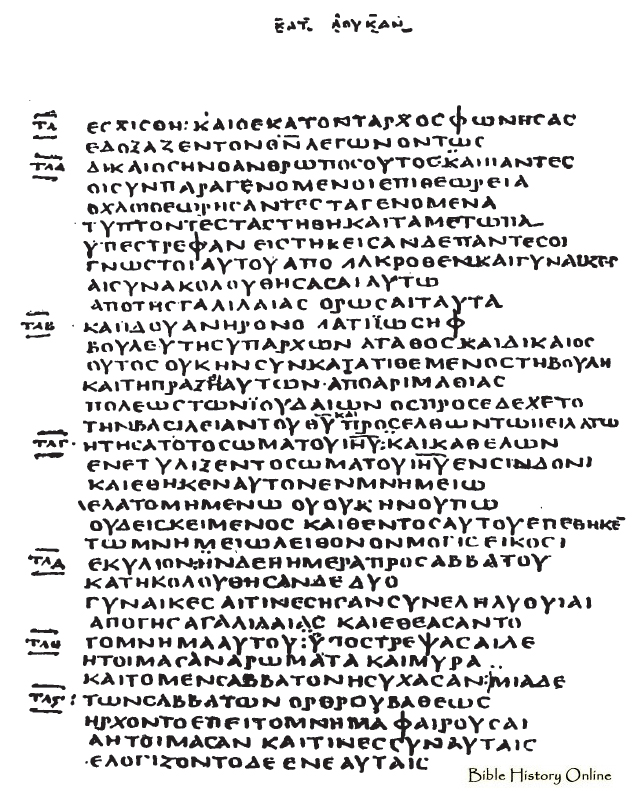 ΚΑΤ ΛΟΥΚΑΝ
ΤΛ ΕϹΧΙϹΘΗ: ΚΑΙΟΕΚΑΤΟΝΤΑΡΧΟϹ ΦΩΝΗϹΑϹ
ΕΔΟΖΑΖΕΝΤΟΝΘ̅Ν̅ ΛΕΓΩΝΟΝΤΩϹ
ΤΛΑ ΔΙΚΑΙΟϹΗΝΟΑΝΘΡΩΠΟϹΟΥΤΟϹ: ΚΑΙΠΑΝΤΕϹ
ΟΙϹΥΝΠΑΡΑΓΕΝΟΜΕΝΟΙΕΠΙΘΕΩΡΕΙΑ
ΟΧΛΟΙΘΕΩΡΗϹΑΝΤΕϹΤΑΓΕΝΟΜΕΝΑ
ΤΥΠΤΟΝΤΕϹΤΑϹΤΗΘΗ ΚΑΙΤΑΜΕΤΩΠΑ
ΥΠΕϹΤΡΕΦΑΝ ΕΙϹΤΗΚΕΙϹΑΝΔΕΠΑΝΤΕϹΟΙ
ΓΝΩϹΤΟΙΑΥΤΟΥ ΑΠΟ ΜΑΚΡΟΘΕΝ ΚΑΙΓΥΝΑΙΚΕϹ
ΑΙϹΥΝΑΚΟΛΟΥΘΗϹΑϹΑΙ ΑΥΤΩ
ΑΠΟΤΗϹΓΑΛΙΛΑΙΑϹ ΟΡΩϹΑΙΤΑΥΤΑ
ΤΛΒ ΚΑΙΙΔΟΥ ΑΝΗΡΟΝΟΜΑΤΙΪΩϹΗΦ
ΒΟΥΛΕΥΤΗϹΥΠΑΡΧΩΝ ΑΓΑΘΟϹ ΚΑΙΔΙΚΑΙΟϹ
ΟΥΤΟϹ ΟΥΚΗΝϹΥΝΚΑΤΑΤΙΘΕΜΕΝΟϹΤΗΒΟΥΛΗ
ΚΑΙΤΗΠΡΑΖΕΙΑΥΤΩΝ·ΑΠΟΑΡΙΜΑΘΙΑϹ
ΠΟΛΕΩϹΤΩΝΪΟΥΔΑΙΩΝ ΟϹΠΡΟϹΕΔΕΧΕΤΟ
ΤΗΝΒΑϹΙΛΕΙΑΝΤΟΥΘ̅Υ̅ ΚΑΙ ΠΡΟϹΕΛΘΩΝΤΩΠΕΙΛΑΤΩ
ΤΛΓ· ΗΤΗϹΑΤΟΤΟϹΩΜΑΤΟΥΙ̅Η̅Υ̅: ΚΑΙΚΑΘΕΛΩΝ
ΕΝΕΤΥΛΙΖΕΝΤΟϹΩΜΑΤΟΥΙ̅Η̅Υ̅ΕΝϹΙΝΔΟΝΙ
ΚΑΙΕΘΗΚΕΝΑΥΤΟΝΕΝΜΝΗΜΕΙΩ
ΛΕΛΑΤΟΜΗΜΕΝΩ ΟΥΟΥΚΗΝΟΥΠΩ
ΟΥΔΕΙϹΚΕΙΜΕΝΟϹ ΚΑΙΘΕΝΤΟϹΑΥΤΟΥΕΠΕΘΗΚΕ̅
ΤΩΜΝΗΜΕΙΩΛΕΙΘΟΝΟΝΜΟΓΙϹΕΙΚΟϹΙ
ΤΛΔ ΕΚΥΛΙΟΝ:ΗΝΔΕΗΗΜΕΡΑΠΡΟϹΑΒΒΑΤΟΥ
ΚΑΤΗΚΟΛΟΥΘΗϹΑΝΔΕ ΔΥΟ
ΓΥΝΑΙΚΕϹ ΑΙΤΙΝΕϹΗϹΑΝϹΥΝΕΛΗΛΥΘΥΙΑΙ
ΑΠΟΤΗϹΓΑΛΙΛΑΙΑϹ ΚΑΙΕΘΕΑϹΑΝΤΟ
ΤΛΕ ΤΟΜΝΗΜΑΑΥΤΟΥ:ΫΠΟϹΤΡΕΨΑϹΑΙΔΕ
ΗΤΟΙΜΑϹΑΝΑΡΩΜΑΤΑ ΚΑΙΜΥΡΑ
ΚΑΙΤΟΜΕΝϹΑΒΒΑΤΟΝΗϹΥΧΑϹΑΝ:ΜΙΑΔΕ
ΤΛϚ: ΤΩΝϹΑΒΒΑΤΩΝ ΟΡΘΡΟΥΒΑΘΕΩϹ
ΗΡΧΟΝΤΟΕΠΕΙΤΟΜΝΗΜΑ ΦΑΙΡΟΥϹΑΙ
ΑΗΤΟΙΜΑϹΑΝ ΚΑΙΤΙΝΕϹϹΥΝΑΥΤΑΙϹ
·ΕΛΟΓΙΖΟΝΤΟΔΕ ΕΝΕΑΥΤΑΙϹ
Bible History Online